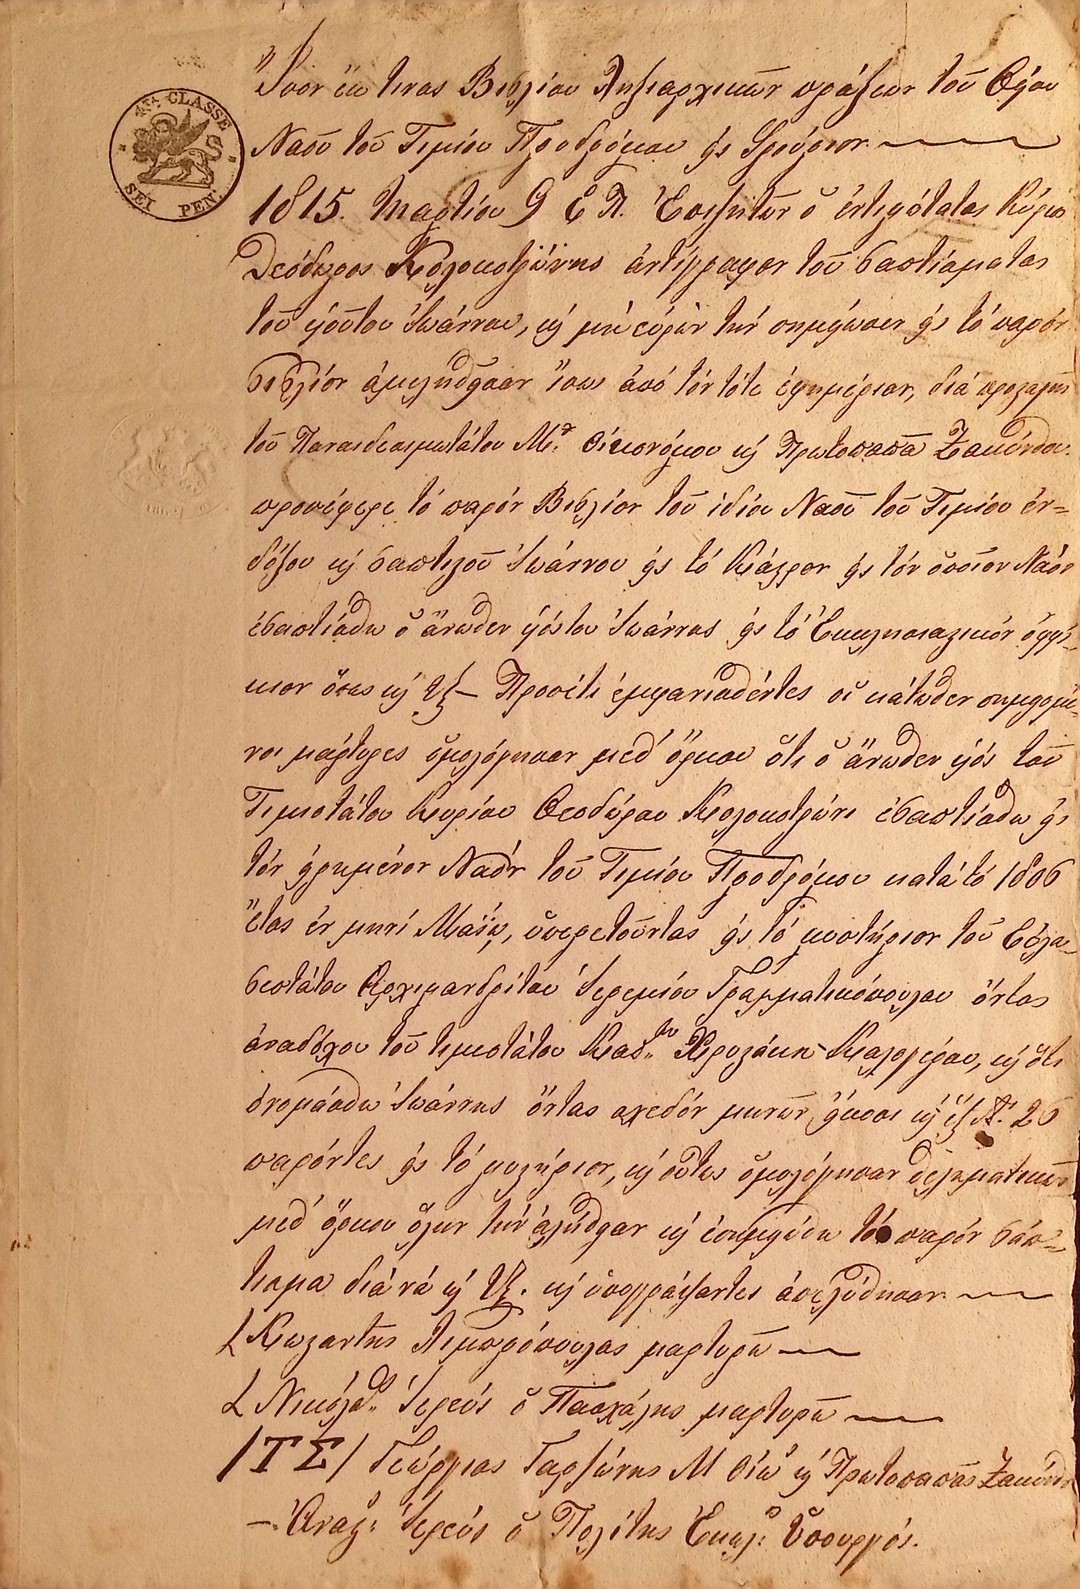 4TA CLASSE
SEI PEN.
Ἴσον ἔκ τινος Βιβλίου Ληξιαρχικῶν πράξεων τοῦ Θείου
Ναοῦ τοῦ Τιμίου Προδρόμου εἰς Φρούριον
1815. Μαρτίου 9 Ε.Π. Ἐπιζητῶν ὁ ἐντιμότατος Κύριος
Θεόδωρος Κολοκοτρώνης ἀντίγραφον τοῦ βαπτίσματος
τοῦ υἱοῦ του Ἰωάννου, καὶ μὴ εὑρὼν τὴν σημείωσιν εἰς τὸ παρὸν
βιβλίον ἀμεληθεῖσαν ἴσως ἀπὸ τὸν τότε ἐφημέριον, διὰ προσταγῆς
τοῦ Παναιδεσιμωτάτου Μ. Οἰκονόμου καὶ Πρωτοπαπᾶ Ζακύνθου
προσέφερε τὸ παρὸν Βιβλίον τοῦ ἰδίου Ναοῦ τοῦ Τιμίου ἐν-
δόξου καὶ βαπτιστοῦ Ἰωάννου εἰς τὸ Κάστρον εἰς τὸν ὁποῖον Ναὸν
ἐβαπτίσθη ὁ ἄνωθεν υἱός του Ἰωάννης εἰς τὸ Ἐκκλησιαστικὸν ὀφφί-
κιον ὅπως καὶ Προσέτι ἐμφανισθέντες οἱ κάτωθεν σημειομέ-
νοι μάρτυρες ὡμολόγησαν μεθ' ὅρκου ὅτι ὁ ἄνωθεν υἱὸς τοῦ
Τιμιοτάτου Κυρίου Θεοδώρου Κολοκοτρώνι ἐβαπτίσθη εἰς
τὸν εἰρημένον Ναὸν τοῦ Τιμίου Προδρόμου κατὰ τὸ 1806
ἔτος ἐν μηνὶ Μαΐῳ, ὑπερετοῦντος εἰς τὸ μυστήριον τοῦ Εὐλα-
βεστάτου Ἀρχιμανδρίτου Ἱερεμίου Γραμματικόπουλου ὄντος
ἀναδόχου τοῦ τιμιοτάτου Καβ. Καλογέρου, καὶ ὅτι
ὀνομάσθη Ἰωάννης ὄντος σχεδὸν μηνῶν εἴκοσι καὶ ἕξ Α. 26
παρόντες εἰς τὸ μυστήριον, καὶ οὕτως ὡμολόγησαν θεληματικῶς
μεθ' ὅρκου ὅλην τὴν ἀλήθειαν καὶ ἐσημειώθη τὸ παρὸν βάπ-
τισμα διὰ νὰ καὶ ὑπογράψαντες ἀπελύθησαν
Κωσταντῆς Λιμπρόπουλος μαρτυρῶ
Νικόλαος Ἱερεὺς ὁ Πασχάλης μαρτυρῶ
/Τ Σ/ Γεώργιος Γαρζώνης Μ Οἰκ καὶ Πρωτοπαπᾶς Ζακύνθου
Ἀναστ: Ἱερεὺς ὁ Πολίτης Ἐκκλ: Ὑπουργός.